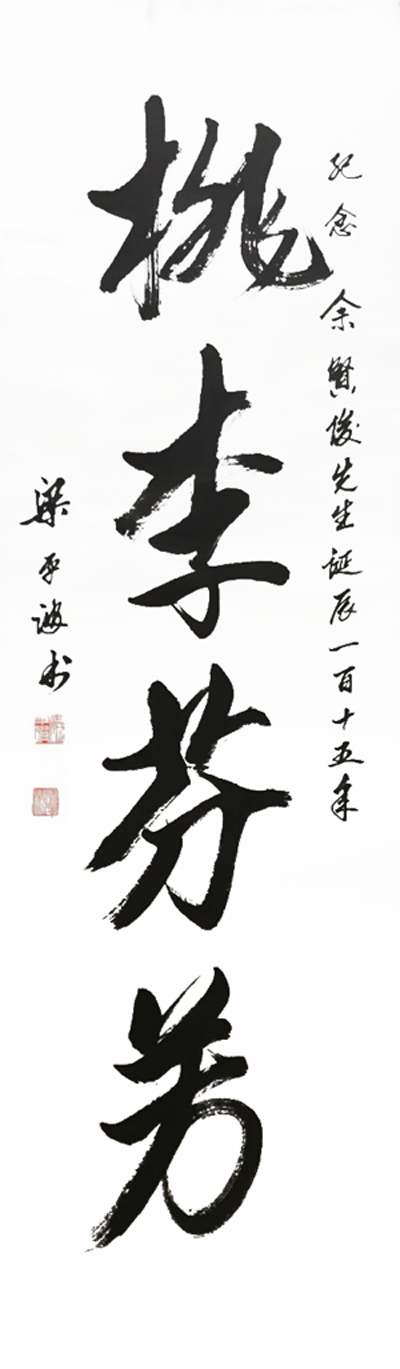 纪念余贤俊先生诞辰一百十五年
桃李芬芳
梁平波书